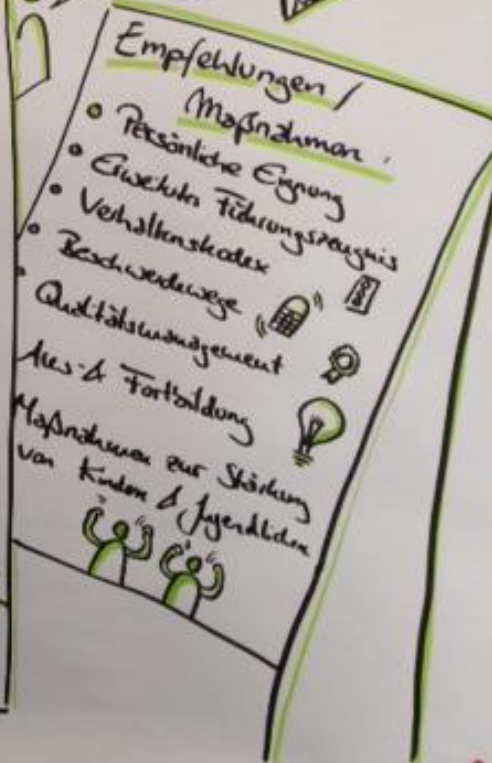 Empfehlungen /
Maßnahmen:
• Persönliche Eignung
• Erweitertes Führungszeugnis
• Verhaltenskodex
• Beschwerdewege
• Qualitätsmanagement
Aus- & Fortbildung
Maßnahmen zur Stärkung
von Kindern & Jugendlichen